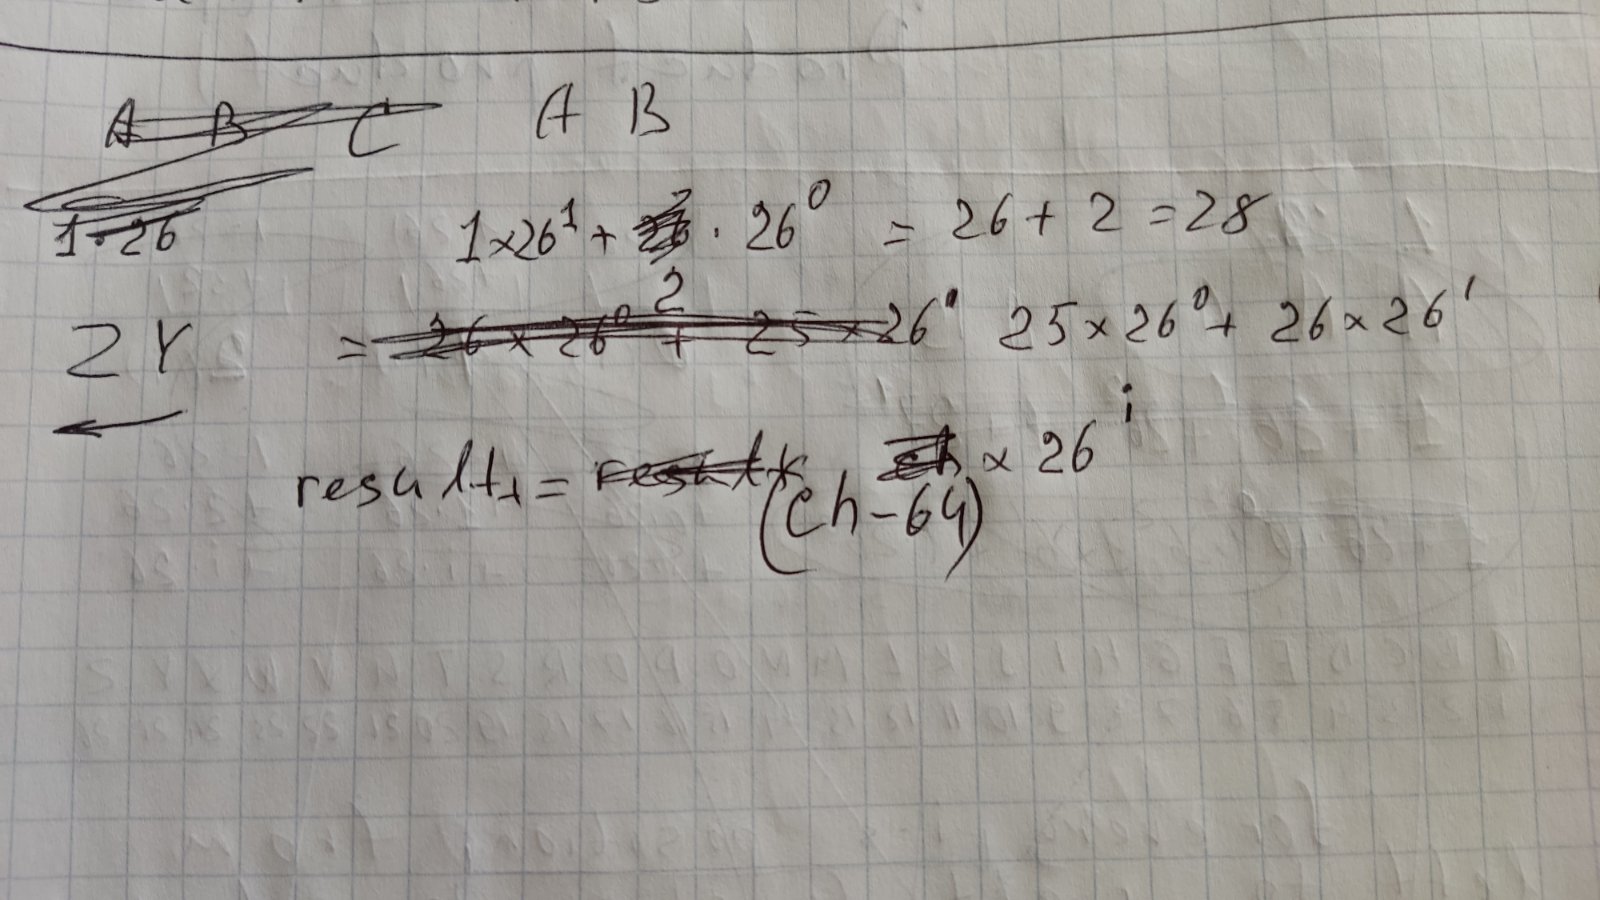 A B C A B
1·26 1×26¹ + 2 · 26⁰ = 26 + 2 = 28
ZY = 26 × 26⁰ + 25 × 26¹ 25 × 26⁰ + 26 × 26¹
result += result + ch × 26ⁱ
(ch-64)